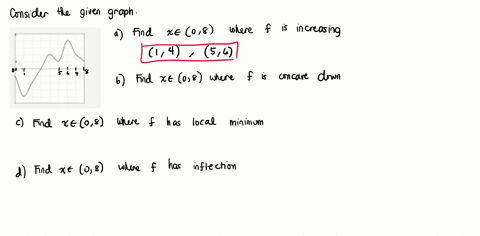 Consider the given graph.
a) Find x ∈ (0,8) where f is increasing
(1,4), (5,6)
b) Find x ∈ (0,8) where f is concave down
c) Find x ∈ (0,8) where f has local minimum
d) Find x ∈ (0,8) where f has inflection